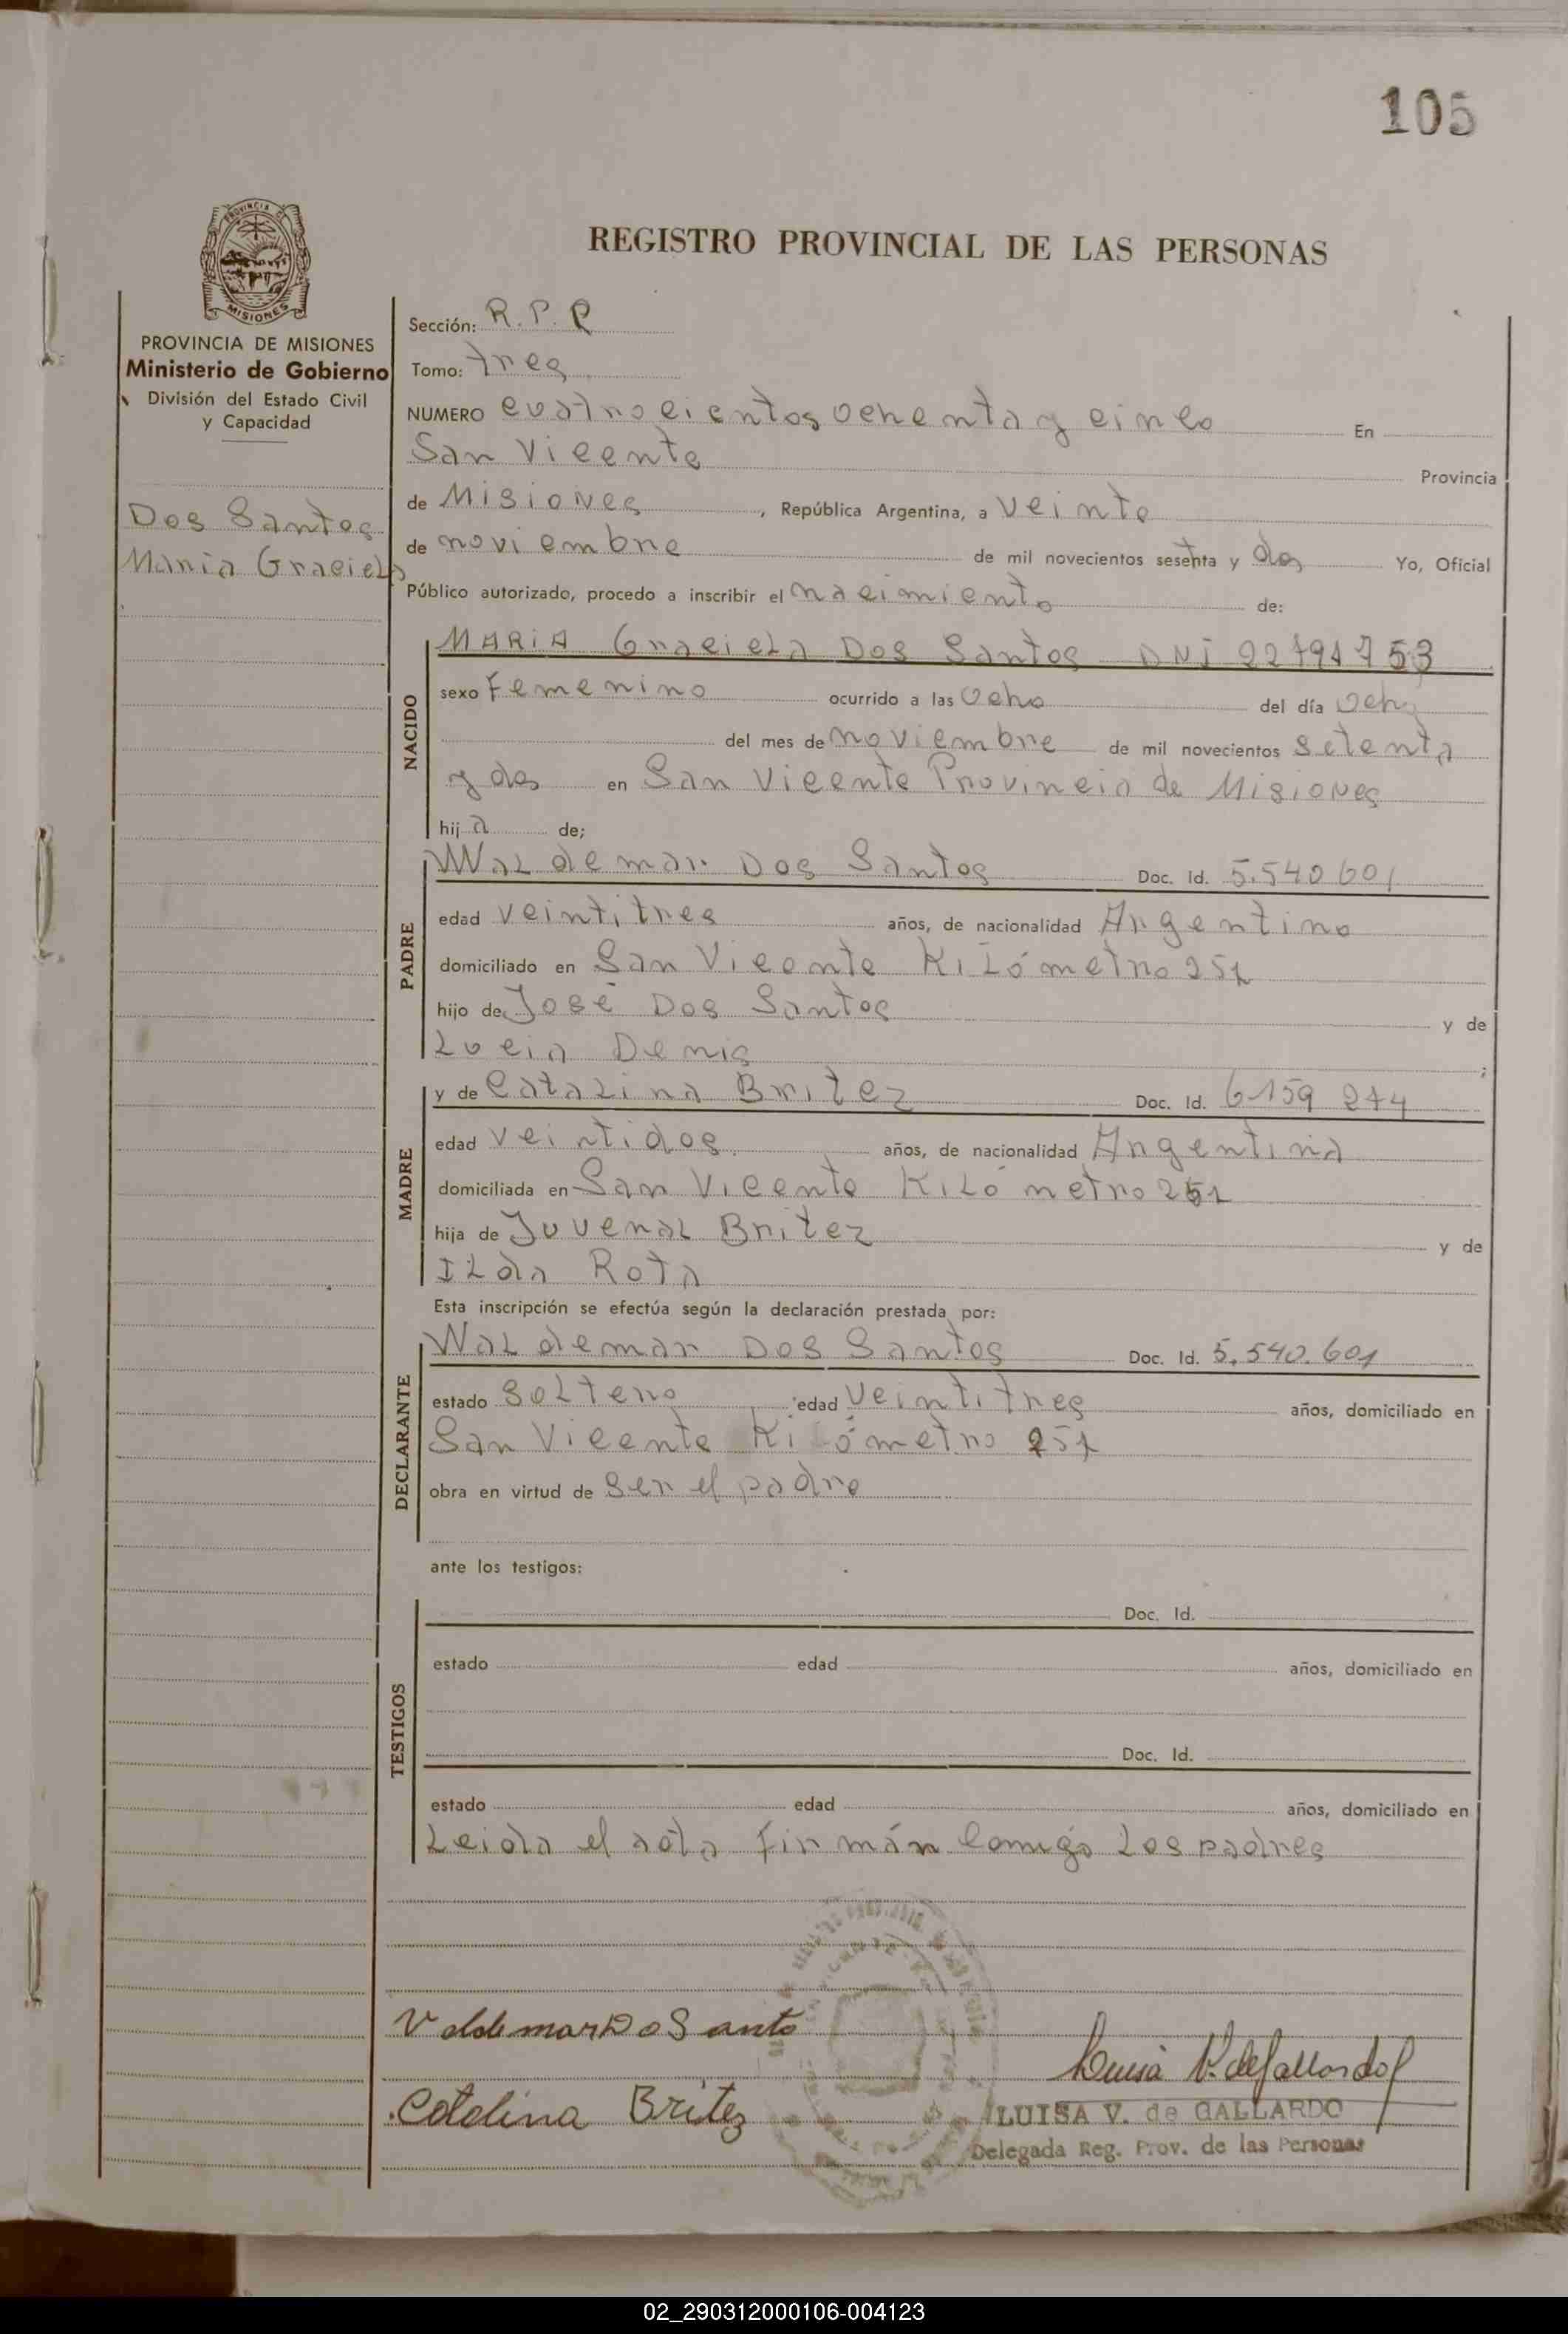 105
REGISTRO PROVINCIAL DE LAS PERSONAS
PROVINCIA DE MISIONES
Ministerio de Gobierno
División del Estado Civil
y Capacidad
Dos Santos
Maria Graciela
Sección: R.P.P
Tomo: tres
NUMERO cuatrocientos ochenta y cinco En
San Vicente Provincia
de Misiones, República Argentina, a veinte
de noviembre de mil novecientos setenta y dos Yo, Oficial
Público autorizado, procedo a inscribir el nacimiento de:
NACIDO
MARIA Graciela Dos Santos DNI
sexo Femenino ocurrido a las ocho del día ocho
del mes de noviembre de mil novecientos setenta
y dos en San Vicente Provincia de Misiones
hija de;
PADRE
Waldemar Dos Santos Doc. Id. 5.540.601
edad veintitres años, de nacionalidad Argentino
domiciliado en San Vicente Kilómetro 251
hijo de José Dos Santos y de
Lucia Denis;
MADRE
y de Catalina Britez Doc. Id. 6.159 274
edad veintidos años, de nacionalidad Argentina
domiciliada en San Vicente Kilómetro 251
hija de Juvenal Britez y de
Ilda Rota
Esta inscripción se efectúa según la declaración prestada por:
DECLARANTE
Waldemar Dos Santos Doc. Id. 5.540.601
estado Soltero edad veintitres años, domiciliado en
San Vicente Kilómetro 251
obra en virtud de ser el padre
ante los testigos:
TESTIGOS
Doc. Id.
estado edad años, domiciliado en
Doc. Id.
estado edad años, domiciliado en
Leida el acta firmán comigo los padres
Valdemar Dos Santo
Luisa V. de Gallardo
Catalina Britez
LUISA V. de GALLARDO
Delegada Reg. Prov. de las Personas
02_290312000106-004123